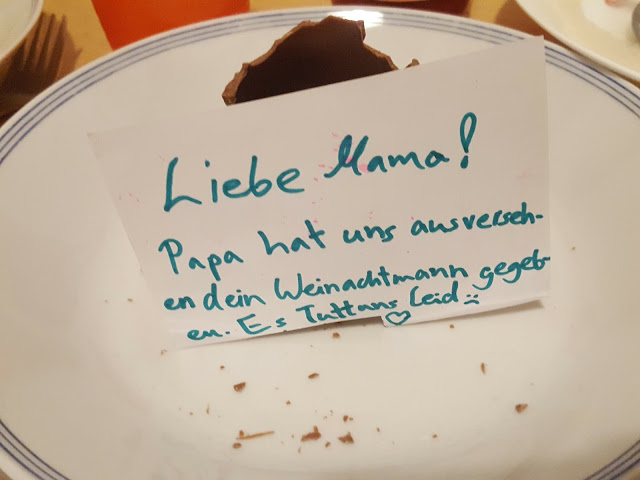 Liebe Mama!
Papa hat uns ausverseh-
en dein Weinachtmann gegeb-
en. Es Tuttuns Leid ☹
♡